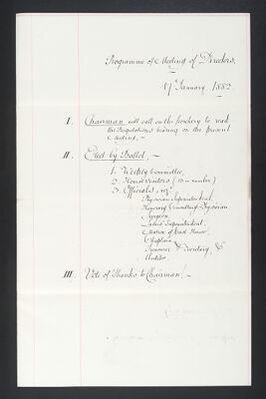 Programme of Meeting of Directors,
17 January, 1882
I. Chairman will call on the Secretary to read
the Regulations bearing on the present
Meeting,—
II. Elect by Ballot,—
1. Weekly Committee,
2. House Visitors (in number)
3. Officials, viz
Physician Superintendent,
Honorary Consulting Physician
Surgeon
Lady Superintendent,
Matron of East House,
Chaplain
Treasurer & Secretary, &
Auditor
III. Vote of Thanks to Chairman!—